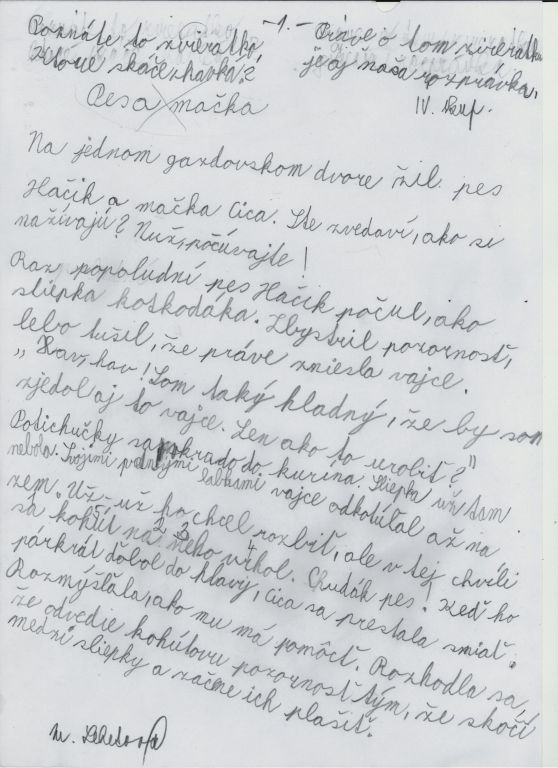 -1.-
Poznáte to zvieratko,
ktoré skáče, havká?
Práve o tom zvieratku
je aj naša rozprávka.
Pes a mačka
IV.
Na jednom gazdovskom dvore žil pes
Hačik a mačka Cica. Ste zvedaví, ako si
nažívajú? Nuž, počúvajte!
Raz popoludní pes Hačik počul, ako
sliepka kotkodáka. Zbystril pozornosť,
lebo tušil, že práve zniesla vajce.
"Hav, hav! Som taký hladný, že by som
zjedol aj to vajce. Len ako to urobiť?"
Potichučky sa zakradol do kurína. Sliepka už tam
nebola. Svojimi prednými labkami vajce odkotúľal až na
zem. Už-už ho chcel rozbiť, ale v tej chvíli
sa kohút na neho vrhol. Chudák pes! Keď ho
párkrát ďobol do hlavy, Cica sa prestala smiať.
Rozmýšľala, ako mu má pomôcť. Rozhodla sa,
že odvedie kohútovu pozornosť tým, že skočí
medzi sliepky a začne ich plašiť.
M.